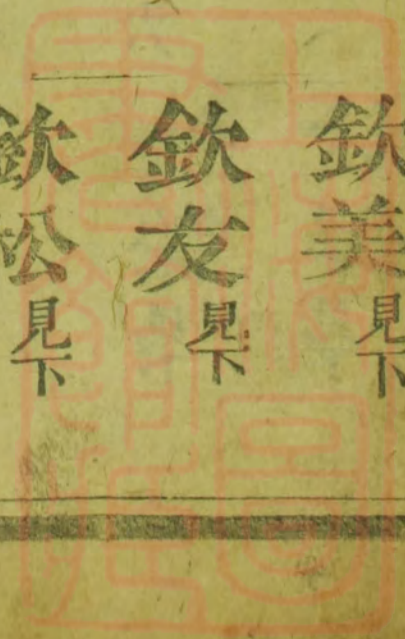 欽美見下
欽友見下
欽松見下